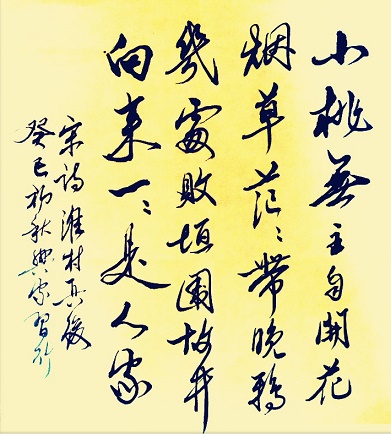 小桃無主自開花
烟草茫〻帶晚鴉
幾處敗垣圍故井
向來一〻是人家
宋詩淮村兵後
癸巳初秋興家習行